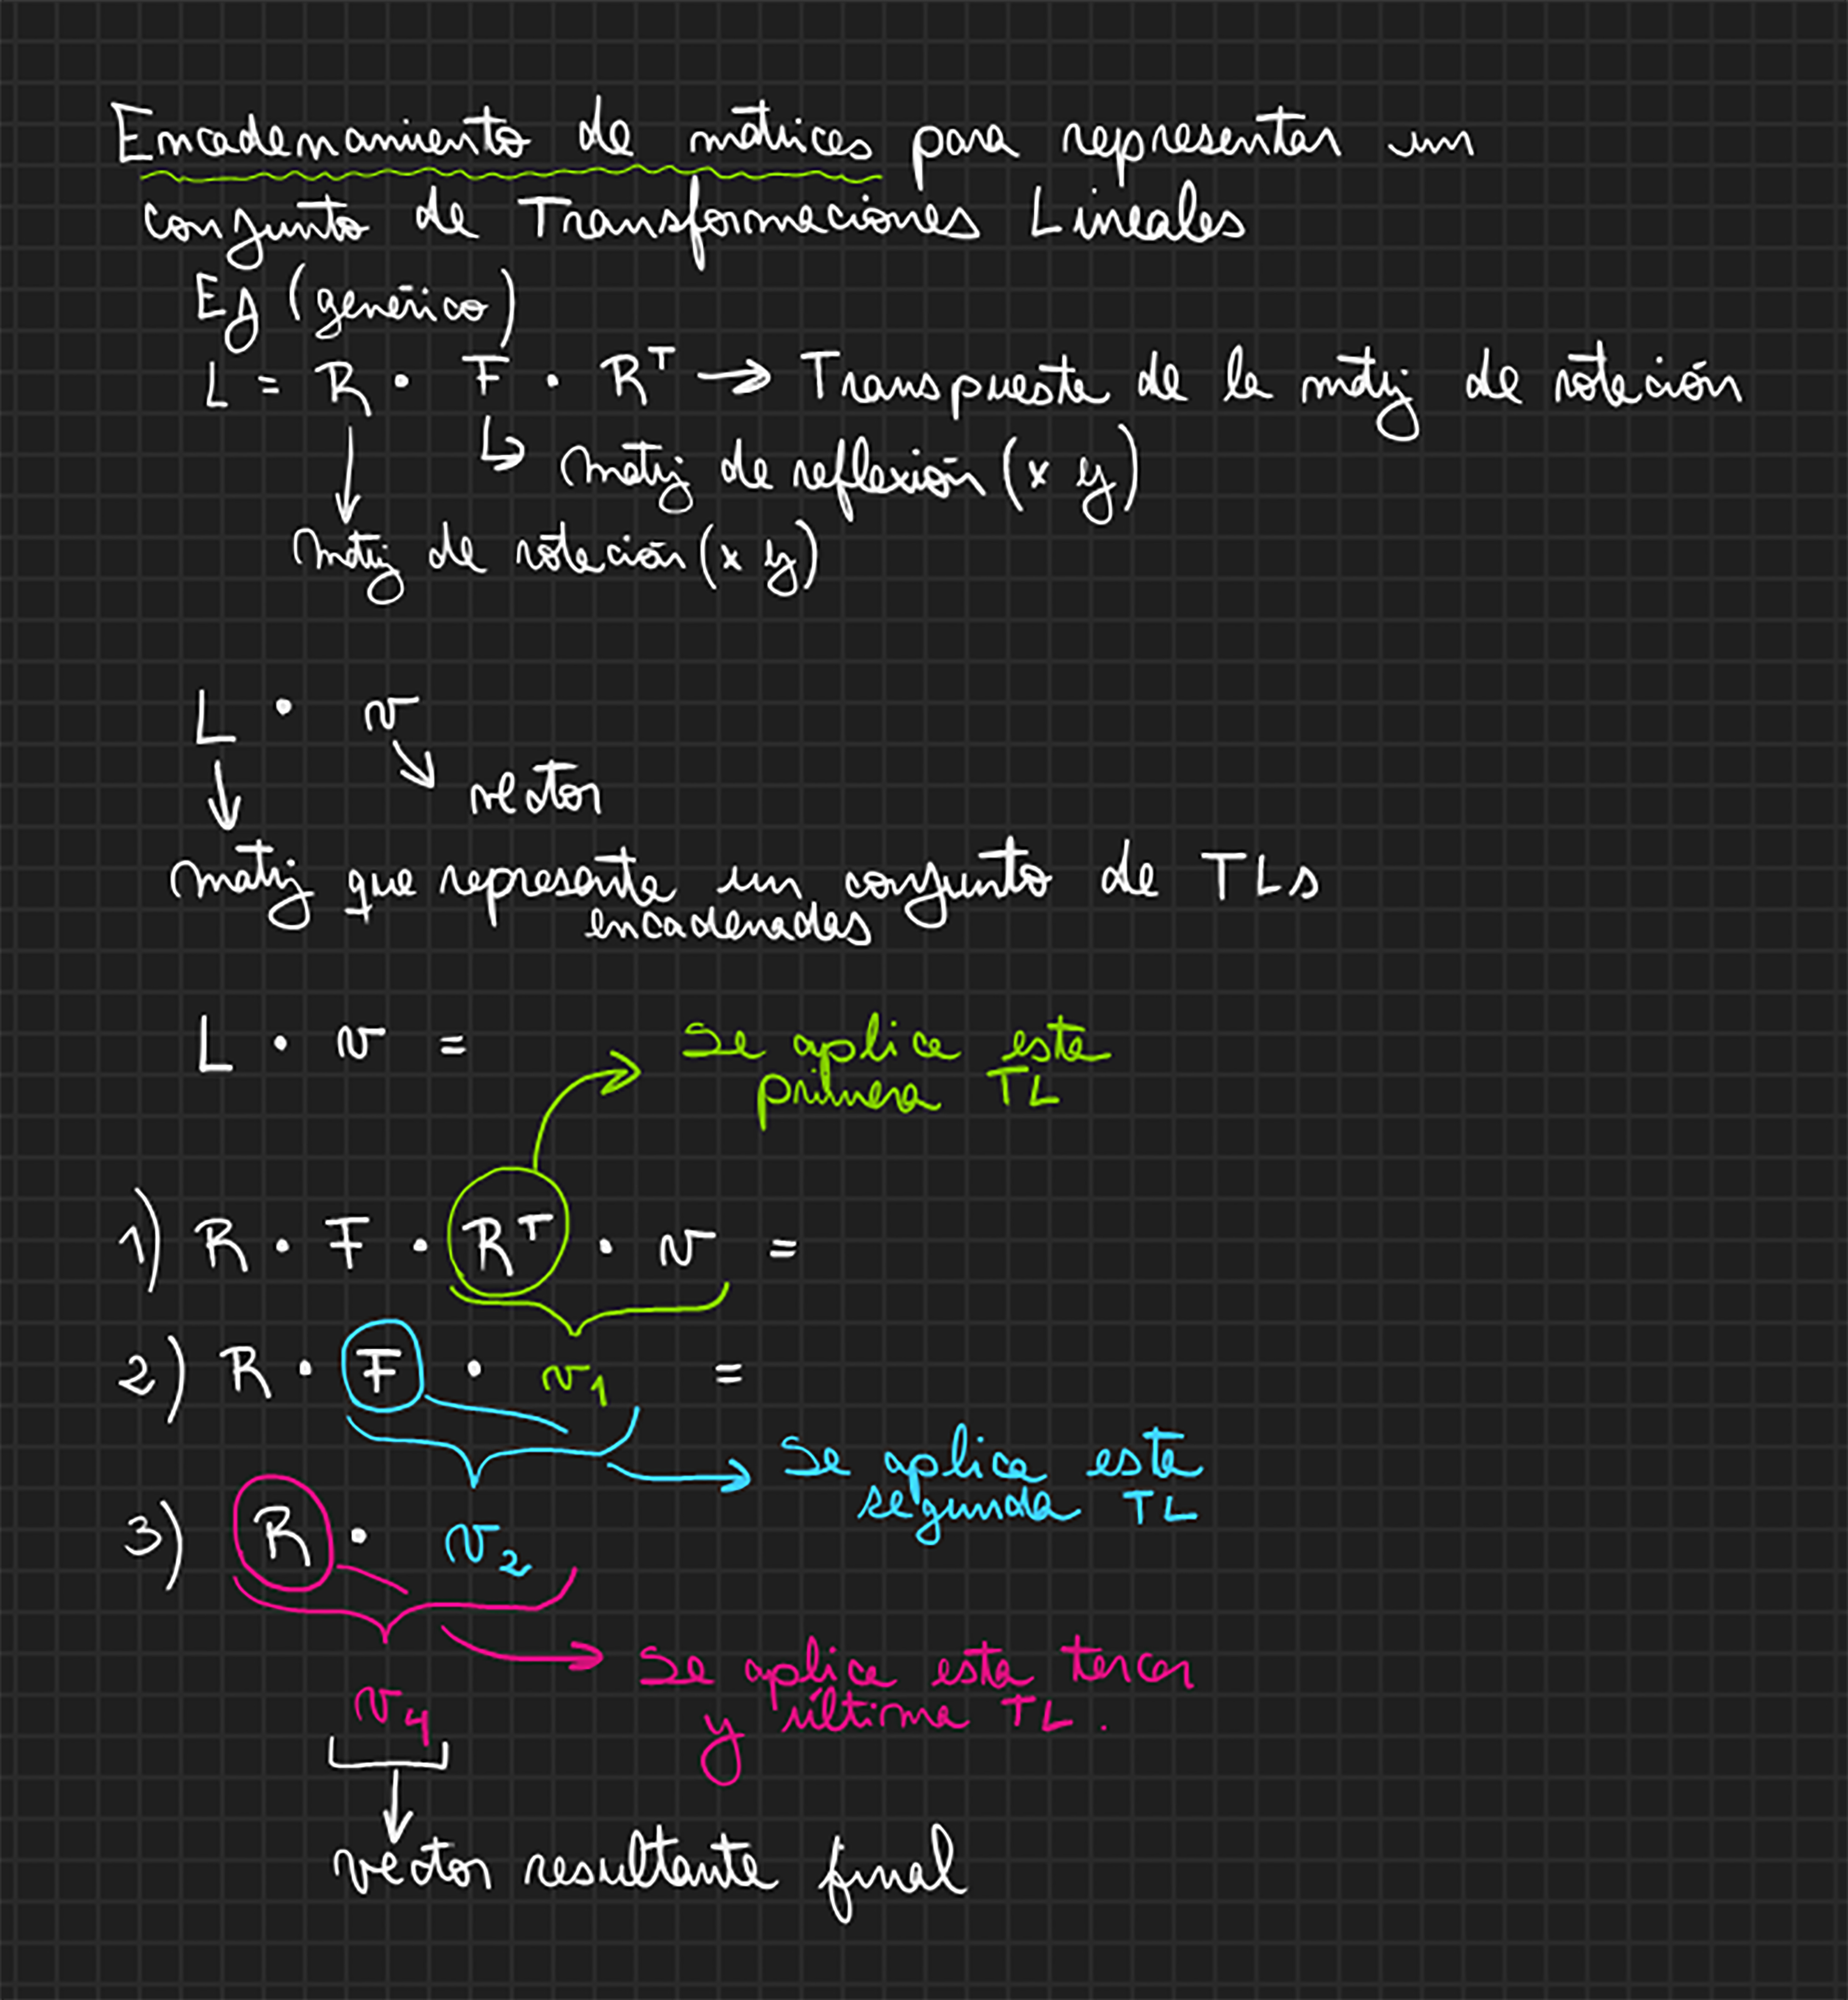 Encadenamiento de matrices para representar un
conjunto de Transformaciones Lineales
Ej (genérico)
L = R · F · Rᵀ → Transpuesta de la matriz de rotación
matriz de reflexión (x y)
matriz de rotación (x y)
L · v
vector
matriz que representa un conjunto de TLs
encadenadas
L · v =
Se aplica esta
primera TL
1) R · F · Rᵀ · v =
2) R · F · v₁ =
Se aplica esta
segunda TL
3) R · v₂
Se aplica esta tercer
y última TL.
v₄
vector resultante final